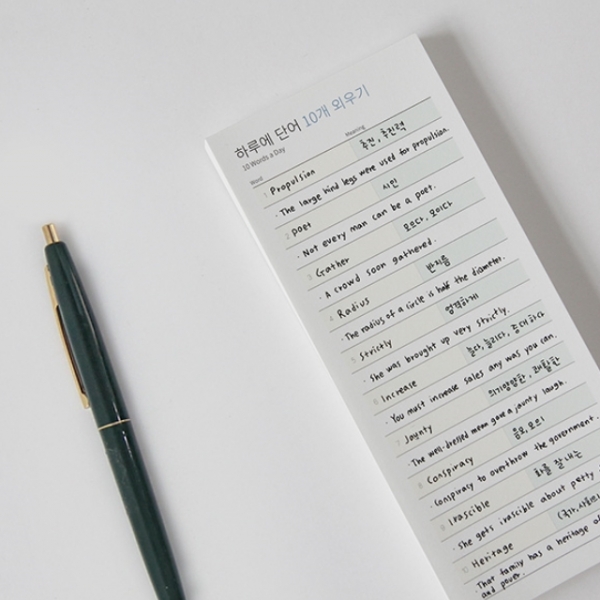 하루에 단어 10개 외우기
10 Words a Day
Word Meaning
1 Propulsion 추진, 추진력
· The large hind legs were used for propulsion.
2 poet 시인
· Not every man can be a poet.
3 Gather 모으다, 모이다
· A crowd soon gathered.
4 Radius 반지름
· The radius of a circle is half the diameter.
5 Strictly 엄격하게
· She was brought up very strictly.
6 Increase 늘다, 늘리다, 증대하다
· You must increase sales any was you can.
7 Jaunty 의기양양한, 쾌활한
· The well-dressed mean gave a jaunty laugh.
8 Conspiracy 음모, 모의
· Conspiracy to overthrow the government.
9 Irascible 화를 잘 내는
· She gets irascible about petty
10 Heritage (국가, 사회의
· That family has a heritage of
and power.